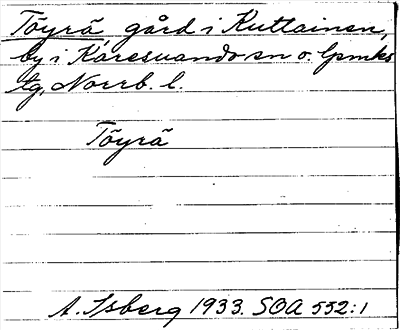 Töyrä gård i Kuttainen,
by i Karesuando sn o. lpmks
tg, Norrb. l.
Töyrä
A. Isberg 1933. SOA 552:1